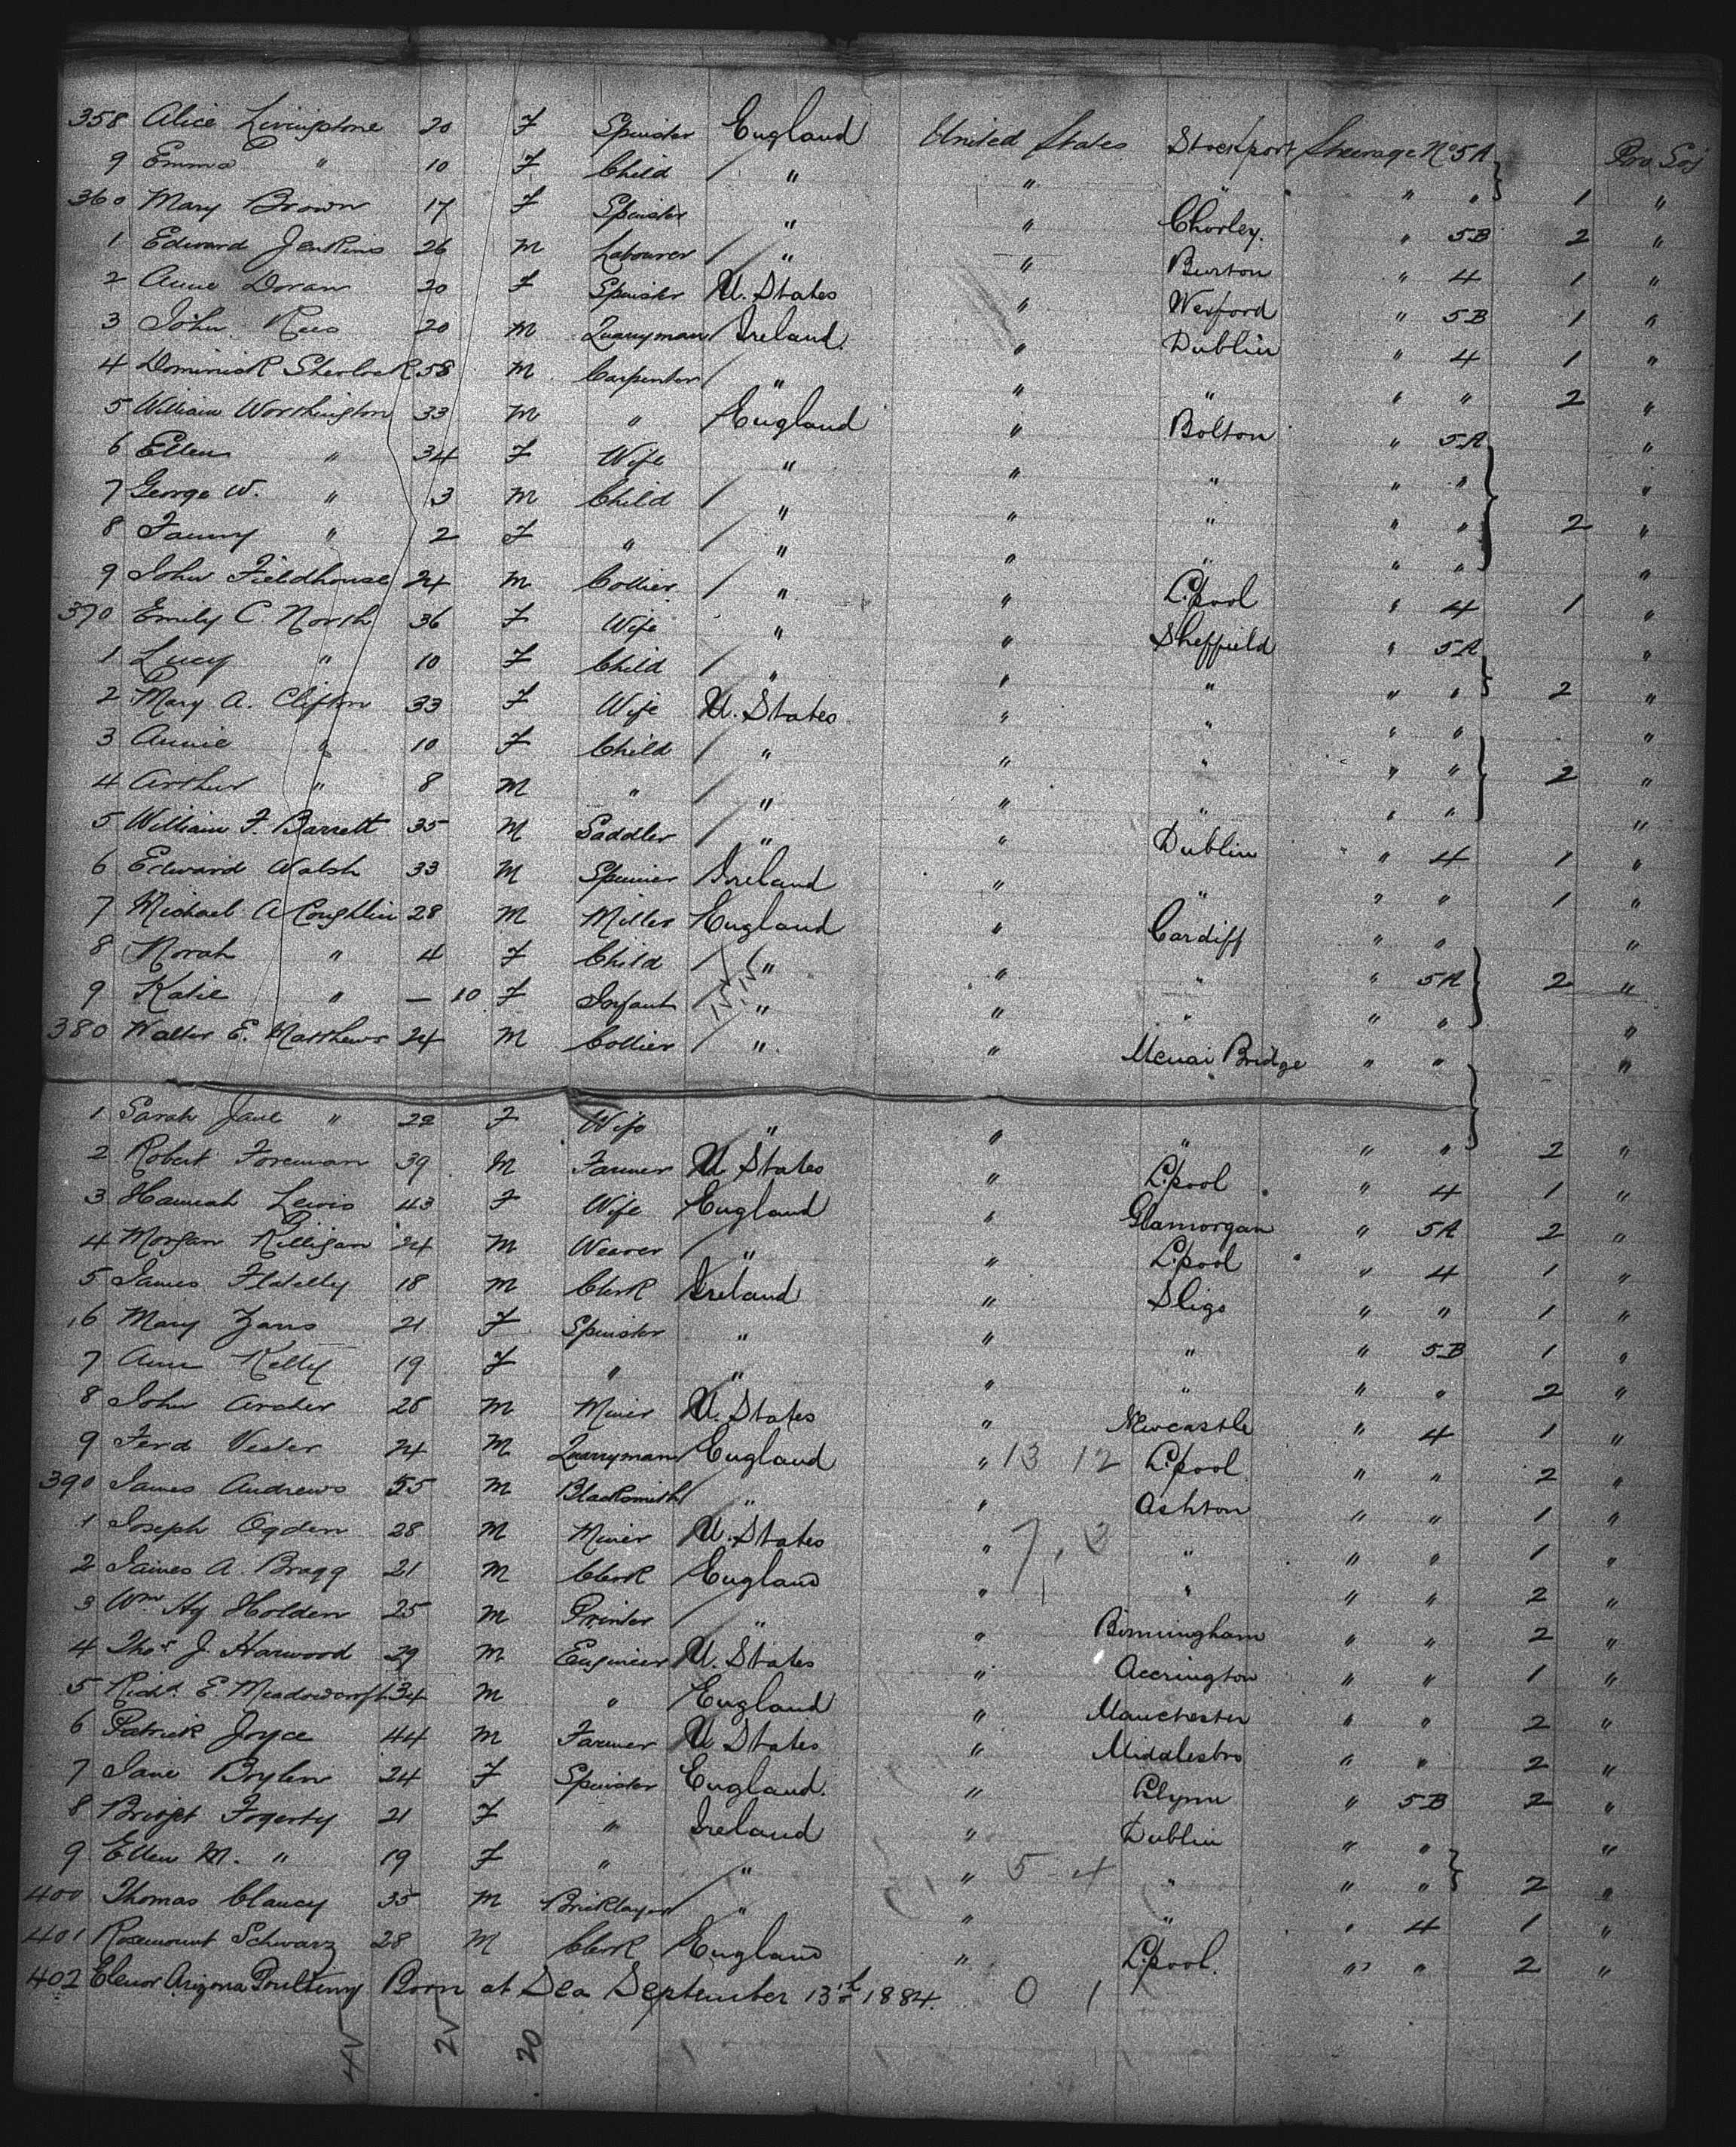 358 Alice Livingstone 20 F Spinster England United States Stockport Steerage No 5A Pro Soj
9 Emma " 10 F Child / " " " " " 1 "
360 Mary Brown 17 F Spinster " " Chorley. " 5B 2 "
1 Edward Jenkins 26 M Labourer / " " Burton " 4 1 "
2 Annie Doran 20 F Spinster U. States " Wexford " 5B 1 "
3 John Rees 20 M Quarryman Ireland. " Dublin " 4 1 "
4 Dominick Sherlock 58 M Carpenter / " " " " " 2 "
5 William Worthington 33 M " England " Bolton " 5A "
6 Ellen " 34 F Wife " " " " " "
7 George W. " 3 M Child / " " " " " 2 "
8 Fanny " 2 F " / " " " " " "
9 John Fieldhouse 24 M Collier / " " L.pool " 4 1 "
370 Emily C. North 36 F Wife " " Sheffield " 5A "
1 Lucy " 10 F Child / " " " " " 2 "
2 Mary A. Clifton 33 F Wife U. States " " " " "
3 Annie " 10 F Child / " " " " " 2 "
4 Arthur " 8 M " / " " " " " "
5 William F. Barrett 35 M Saddler / " " Dublin " 4 1 "
6 Edward Walsh 33 M Ireland " " " " 1 "
7 Michael A Coughlin 28 M Miller England " Cardiff " " "
8 Norah " 4 F Child / " " " " 5A 2 "
9 Katie " — 10 F Infant / " " " " " "
380 Walter E. Matthews 24 M Collier / " " Menai Bridge " " "
1 Sarah Jane " 22 F Wife " " " " " 2 "
2 Robert Foreman 39 M Farmer U States " L.pool " 4 1 "
3 Hannah Lewis 43 F Wife England " Glamorgan " 5A 2 "
4 Morgan Killigan 24 M Weaver / " " L.pool " 4 1 "
5 James Flatelly 18 M Clerk Ireland " Sligo " " 1 "
6 Mary 21 F Spinster " " " " 5B 1 "
7 Ann Kelly 19 F " " " " " " 2 "
8 John Archer 28 M Miner U. States " Newcastle " 4 1 "
9 Ferd Vester 24 M Quarryman England " 13 12 L.pool " " 2 "
390 James Andrews 55 M Blacksmith / " " Ashton " " 1 "
1 Joseph Ogden 28 M Miner U. States " " " " 1 "
2 James A. Bragg 21 M Clerk England " " " " 2 "
3 Wm Hy Holden 25 M Printer / " " Birmingham " " 2 "
4 Thos J. Harwood 29 M Engineer U. States " Accrington " " 1 "
5 Richd. E. Meadowcroft 34 M " England " Manchester " " 2 "
6 Patrick Joyce 44 M Farmer U States " Middlesbro " " 2 "
7 Jane Brylen 24 F Spinster England. " Blynn " 5B 2 "
8 Bridget Fogerty 21 F " Ireland " Dublin " " "
9 Ellen M. " 19 F " " " 5 - 4 " " " 2 "
400 Thomas Clancy 35 M Bricklayer / " " " " 4 1 "
401 Rosemount Schwarz 28 M Clerk England " L.pool. " " 2 "
402 Elenor Arizona Poulteny Born at Sea September 13th 1884. 0 1
20